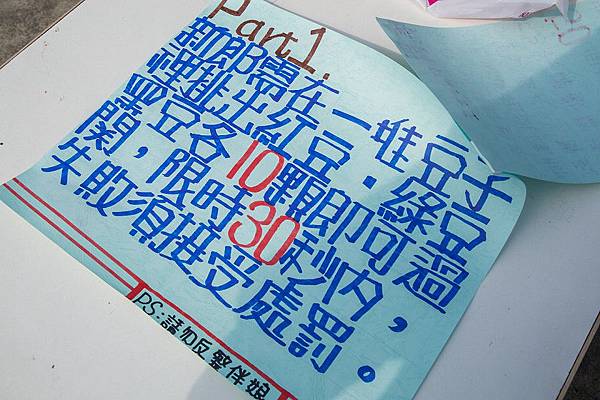 Part1.
新郎需在一堆豆子
裡挑出紅豆.綠豆
黑豆各10顆即可過
關，限時30秒內，
失敗須接受處罰。
P.S.:請勿反整伴娘